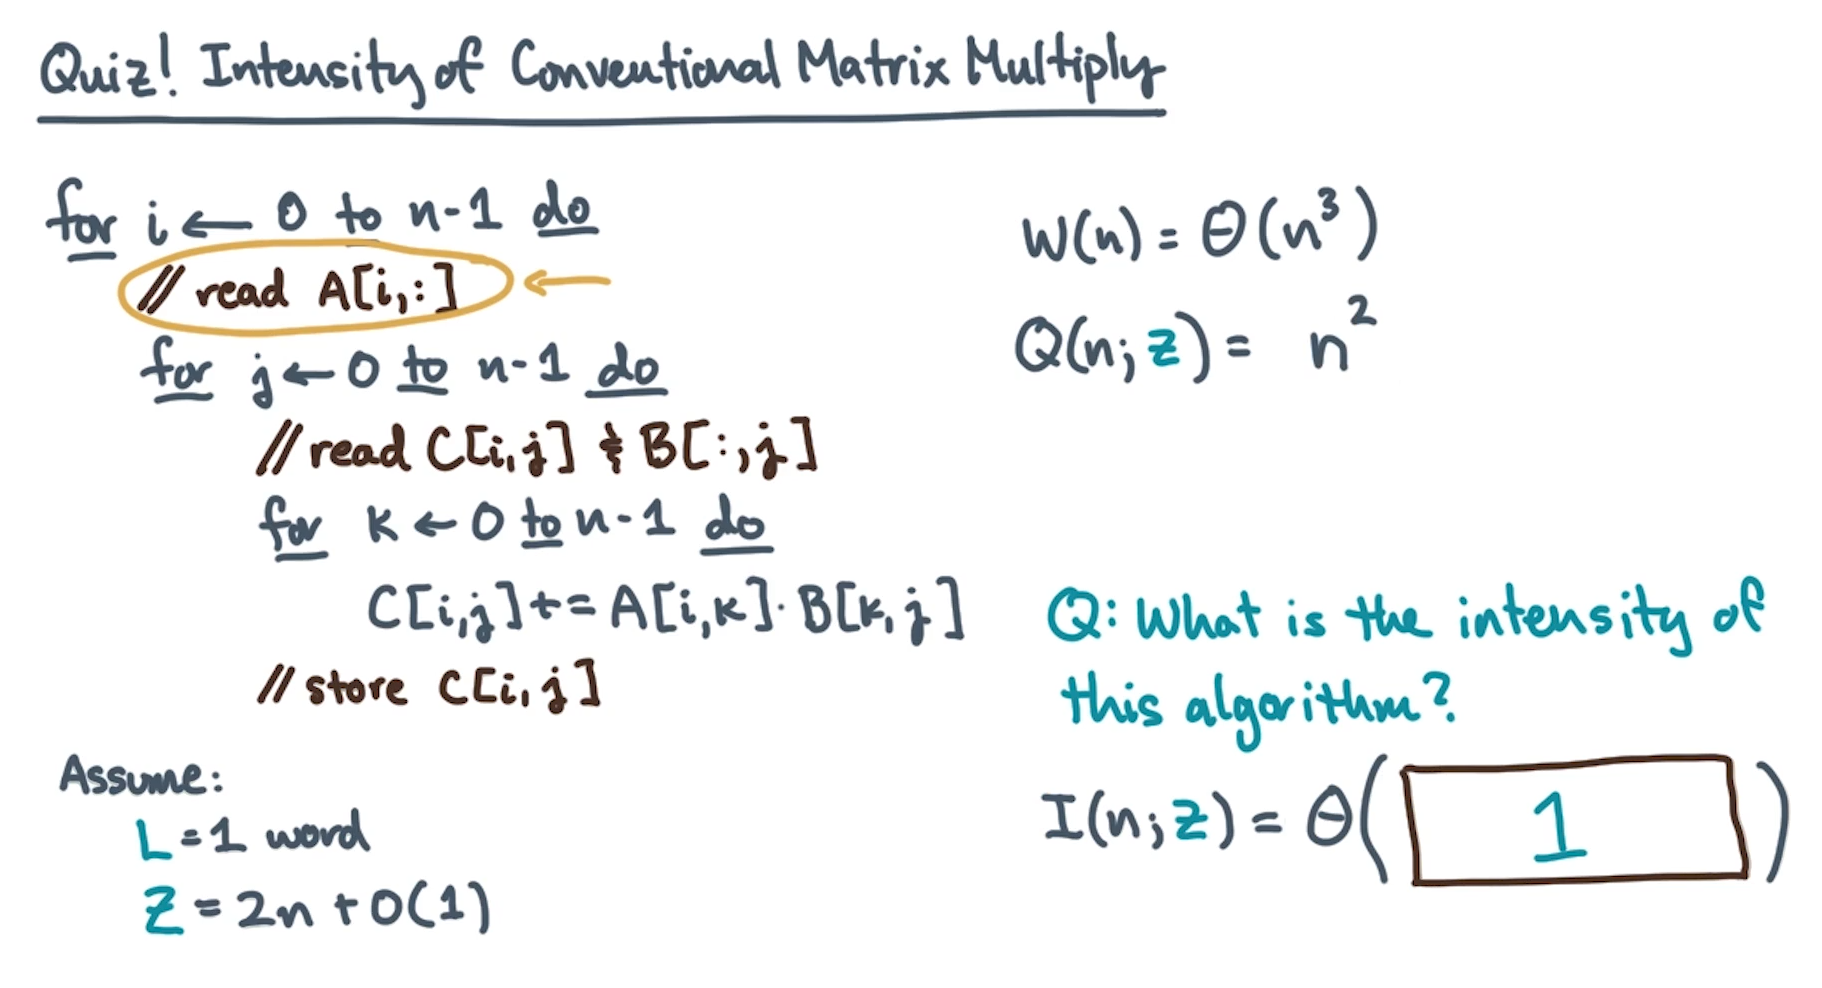 Quiz! Intensity of Conventional Matrix Multiply
for i ← 0 to n-1 do
// read A[i,:]
for j ← 0 to n-1 do
// read C[i,j] & B[:,j]
for k ← 0 to n-1 do
C[i,j] += A[i,k] · B[k,j]
// store C[i,j]
Assume:
L = 1 word
Z = 2n + O(1)
W(n) = Θ(n³)
Q(n; Z) = n²
Q: What is the intensity of
this algorithm?
I(n; Z) = Θ( 1 )